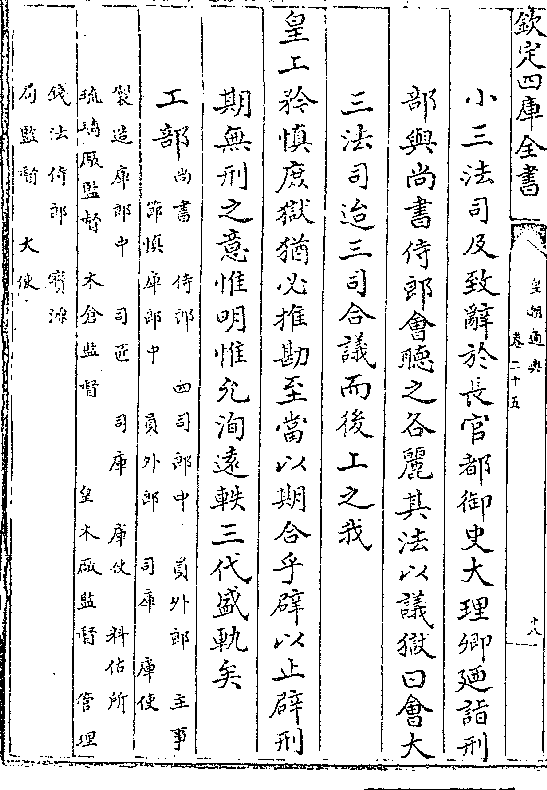 欽定四庫全書
皇朝通典
卷二十五
十八
小三法司及致辭於長官都御史大理卿廼詣刑
部與尚書侍郎會聽之各麗其法以議獄曰會大
三法司迨三司合議而後上之我
皇上矜慎庶獄猶必推勘至當以期合乎辟以止辟刑
期無刑之意惟明惟允洵遠軼三代盛軌矣
工部尚書 侍郎 四司郎中 員外郎 主事
節慎庫郎中 員外郎 司庫 庫使
製造庫郎中 司匠 司庫 庫使 料估所
琉璃廠監督 木倉監督 皇木廠監督 管理
錢法侍郎 寳源
局監督 大使